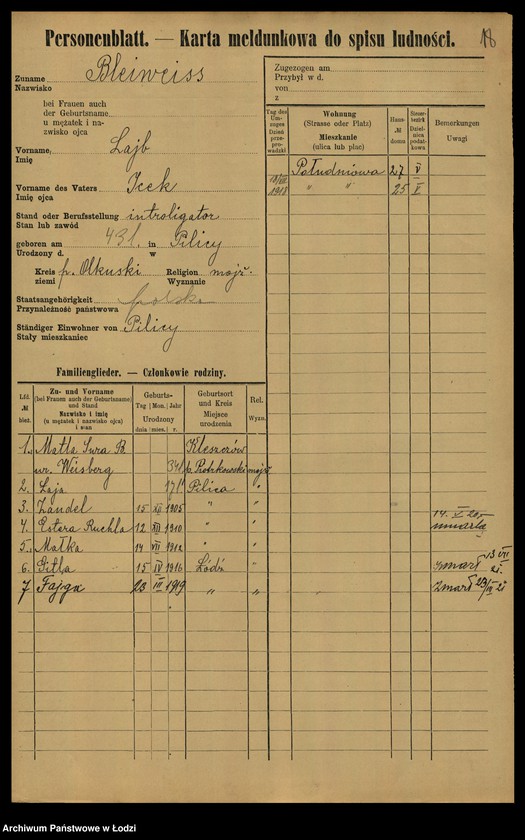 18
Personenblatt. — Karta meldunkowa do spisu ludności.
Zuname Bleiweiss
Nazwisko
bei Frauen auch
der Geburtsname
u mężatek i na-
zwisko ojca
Vorname, Lajb
Imię
Vorname des Vaters Icek
Imię ojca
Stand oder Berufsstellung introligator
Stan lub zawód
geboren am 43 l. in Pilicy
Urodzony d. w
Kreis p. Olkuski Religion mojż.
ziemi Wyznanie
Staatsangehörigkeit polska
Przynależność państwowa
Ständiger Einwohner von Pilicy
Stały mieszkaniec
Zugezogen am
Przybył w d.
von
z
Tag des Um-
zuges
Dzień
prze-
prowadzki
Wohnung
(Strasse oder Platz)
Mieszkanie
(ulica lub plac)
Haus-
№
domu
Steuer-
bezirk
Dziel-
nica
podat-
kowa
Bemerkungen
Uwagi
Południowa 27 V
1918 " " 25 V
Familienglieder. — Członkowie rodziny.
Lfd.
№
bież.
Zu- und Vorname
(bei Frauen auch der Geburtsname)
und Stand
Nazwisko i imię
(u mężatek i nazwisko ojca)
i stan
Geburts-
Tag Mon. Jahr
Urodzony
dnia mies. r.
Geburtsort
und Kreis
Miejsce
urodzenia
Rel.
Wyzn.
1. Matla Sura B. Kleszczów
ur. Weisberg 34 l. p. Piotrkowski mojż
2. Laja 17 l. Pilica "
3. Zandel 15 XII 1905 " "
4. Estera Ruchla 12 XII 1910 " " 14. V umarła
5. Małka 14 VII 1912 " "
6. Gitla 15 IV 1916 Łódź " zmarł VII 21.
7 Fajga 23 III 1919 " " zmarł 23/III 21
Archiwum Państwowe w Łodzi